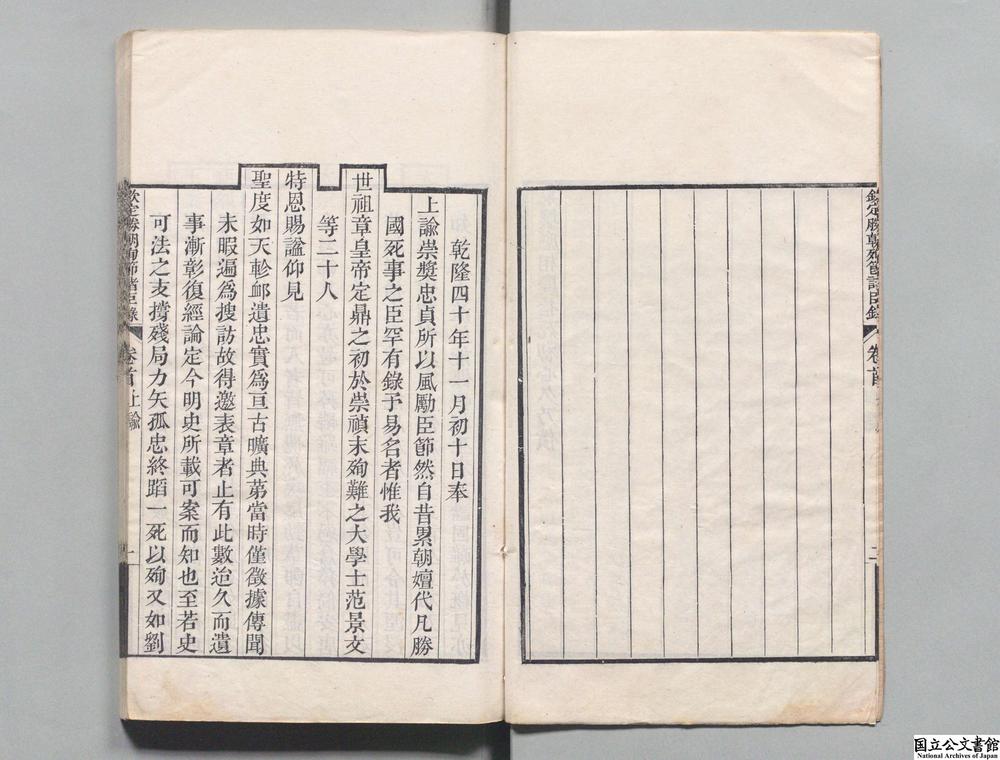 欽定勝朝殉節諸臣錄
卷首
二
乾隆四十年十一月初十日奉
上諭崇獎忠貞所以風勵臣節然自昔累朝嬗代凡勝
國死事之臣罕有錄予易名者惟我
世祖章皇帝定鼎之初於崇禎末殉難之大學士范景文
等二十人
特恩賜諡仰見
聖度如天軫卹遺忠實爲亘古曠典第當時僅徵據傳聞
未暇遍爲搜訪故得邀表章者止有此數迨久而遺
事漸彰復經論定今明史所載可案而知也至若史
可法之支撐殘局力矢孤忠終蹈一死以殉又如劉
欽定勝朝殉節諸臣錄
卷首上諭
一
国立公文書館
National Archives of Japan